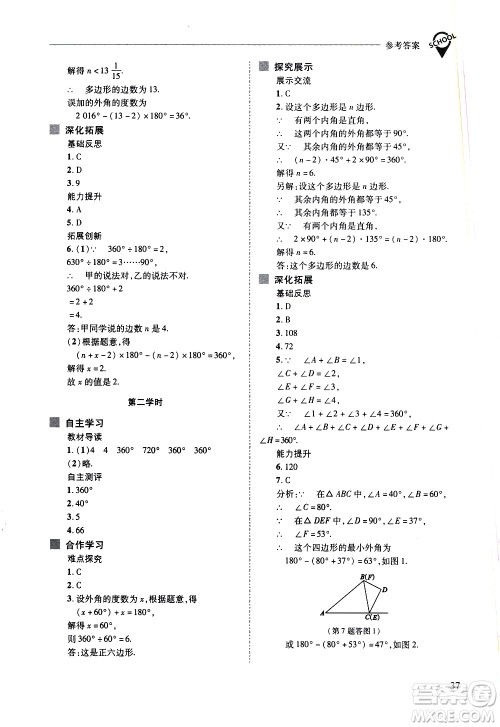 参考答案
SCHOOL
解得 n<13 1/15.
∴ 多边形的边数为 13.
误加的外角的度数为
2 016°-(13-2)×180°=36°.
深化拓展
基础反思
1. C
2. D
3. 9
能力提升
4. A
5. D
拓展创新
6. (1)∵ 360°÷180°=2,
630°÷180°=3……90°,
∴ 甲的说法对,乙的说法不对.
360°÷180°+2
=2+2
=4.
答:甲同学说的边数 n 是 4.
(2)根据题意,得
(n+x-2)×180°-(n-2)×180°=360°.
解得 x=2.
故 x 的值是 2.
第二学时
自主学习
教材导读
1. (1)4 4 360° 720° 360° 360°
(2)略.
自主测评
2. 360°
3. C
4. 5
5. 66
合作学习
难点探究
1. C
2. C
3. 设外角的度数为 x,根据题意,得
(x+60°)+x=180°.
解得 x=60°.
则 360°÷60°=6.
答:这是正六边形.
探究展示
展示交流
1. C
2. 设这个多边形是 n 边形.
∵ 有两个内角是直角,
∴ 有两个内角的外角都等于 90°.
又∵ 其余内角的外角都等于 45°,
∴ (n-2)·45°+2×90°=360°.
解得 n=6.
另解:设这个多边形是 n 边形.
∵ 其余内角的外角都等于 45°,
∴ 其余内角都等于 135°.
又∵ 有两个内角是直角,
∴ 2×90°+(n-2)·135°=(n-2)·180°.
解得 n=6.
答:这个多边形的边数是 6.
深化拓展
基础反思
1. D
2. B
3. 108
4. 72
5. ∵ ∠A+∠B=∠1,
∠C+∠D=∠2,
∠E+∠F=∠3,
∠G+∠H=∠4,
又∵ ∠1+∠2+∠3+∠4=360°,
∴ ∠A+∠B+∠C+∠D+∠E+∠F+
∠G+∠H=360°.
能力提升
6. 120
7. C
分析:∵ 在△ABC 中,∠A=30°,
∴ ∠B+∠C=180°-∠A=150°.
∵ 在△DEF 中,∠D=100°,
∴ ∠E+∠F=180°-∠D=80°.
∵ 这个四边形的最小外角为
180°-(80°+50°)=50°,如图 1.
B(F)
D
A
C(E)
(第 7 题答图 1)
或 180°-(80°+50°)=50°,如图 2.
37
作业帮答案
MXQE.COM